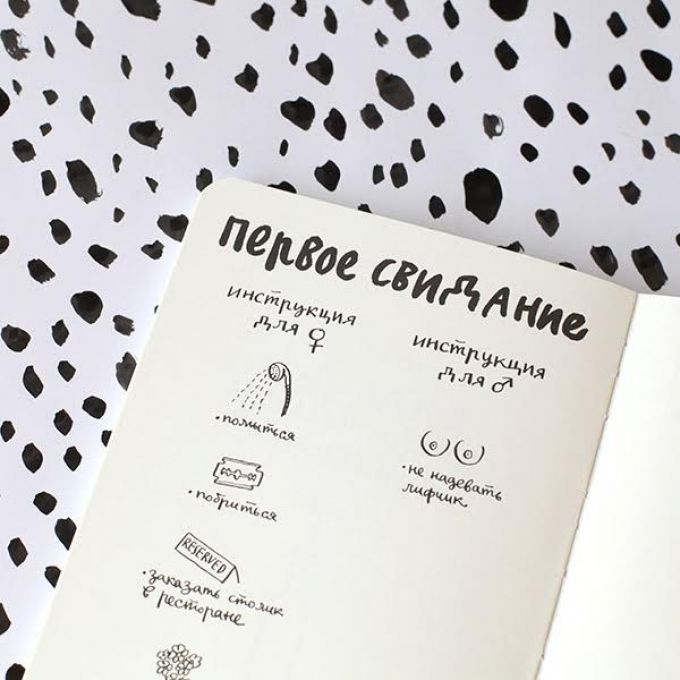 первое свидание
инструкция
для ♀
помыться
побриться
RESERVED
заказать столик
в ресторане
инструкция
для ♂
не надевать
лифчик